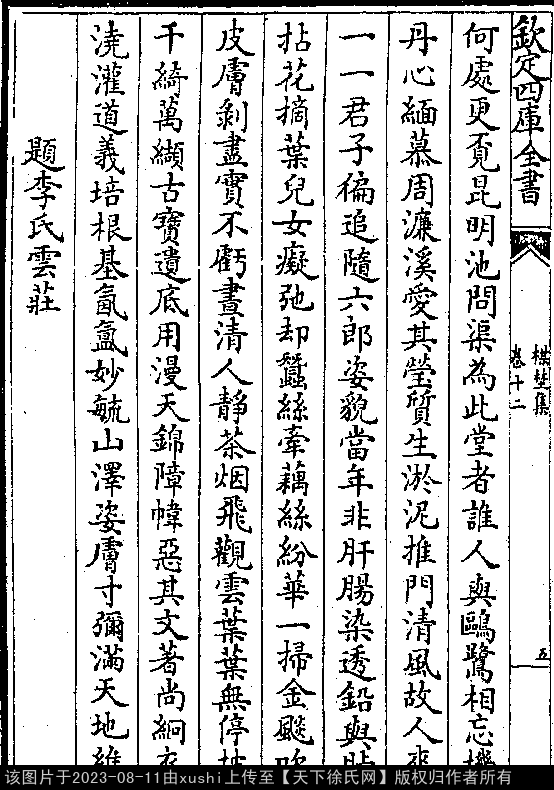 欽定四庫全書
楳埜集
卷十二
五
何處更覓昆明池問渠為此堂者誰人與鷗鷺相忘機
丹心緬慕周濂溪愛其瑩質生淤泥推門清風故人來
一一君子徧追隨六郎姿貌當年非肝腸染透鉛與
拈花摘葉兒女癡弛却蠶絲牽藕絲紛華一掃金飈吹
皮膚剝盡實不虧晝清人靜茶烟飛觀雲葉葉無停
千綺萬纈古寶遺底用漫天錦障幃惡其文著尚絅衣
澆灌道義培根基氤氳妙毓山澤姿膚寸彌滿天地維
題李氏雲莊
该图片于2023-08-11由xushi上传至【天下徐氏网】版权归作者所有